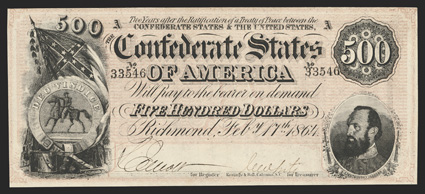 Two Years after the Ratification of a Treaty of Peace between the
500 A CONFEDERATE STATES & THE UNITED STATES, A
THE Confederate States 500
No 33546 OF AMERICA No 33546
Will pay to the bearer on demand
FIVE HUNDRED DOLLARS
Richmond, Feby 17th 1864
for Register for Treasurer